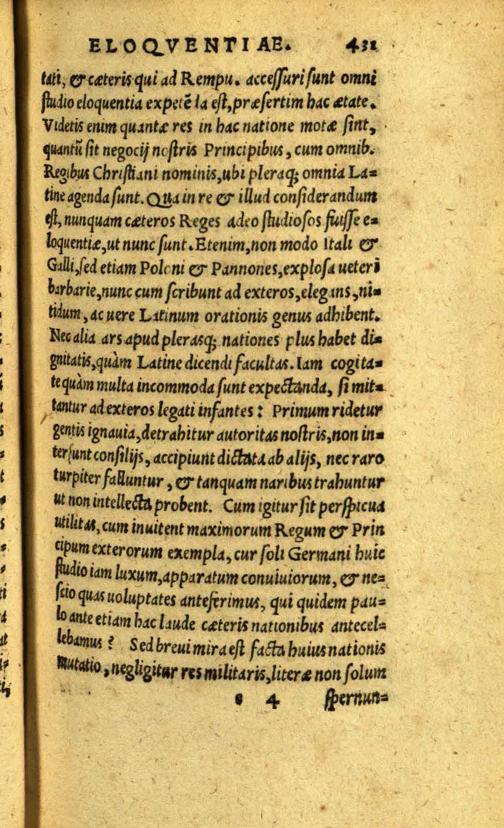 ELOQVENTIAE. 431
tati, & cæteris qui ad Rempu. accessuri sunt omni
studio eloquentia expetẽda est, præsertim hac ætate.
Videtis enim quantæ res in hac natione motæ sint,
quantũ sit negocij nostris Principibus, cum omnib.
Regibus Christiani nominis, ubi pleraq; omnia La=
tine agenda sunt. Qua in re & illud considerandum
est, nunquam cæteros Reges adeo studiosos fuisse e=
loquentiæ, ut nunc sunt. Etenim, non modo Itali &
Galli, sed etiam Poloni & Pannones, explosa ueteri
barbarie, nunc cum scribunt ad exteros, elegans, ni=
tidum, ac uere Latinum orationis genus adhibent.
Nec alia ars apud plerasq; nationes plus habet di=
gnitatis, quàm Latine dicendi facultas. Iam cogita=
te quàm multa incommoda sunt expectanda, si mit=
tantur ad exteros legati infantes: Primum ridetur
gentis ignauia, detrahitur autoritas nostris, non in=
tersunt consilijs, accipiunt dictata ab alijs, nec raro
turpiter falluntur, & tanquam naribus trahuntur
ut non intellecta probent. Cum igitur sit perspicua
utilitas, cum inuitent maximorum Regum & Prin
cipum exterorum exempla, cur soli Germani huic
studio iam luxum, apparatum conuiuiorum, & ne=
scio quas uoluptates anteferimus, qui quidem pau=
lo ante etiam hac laude cæteris nationibus antecel=
lebamus? Sed breui mira est facta huius nationis
mutatio, negligitur res militaris, literæ non solum
e 4 spernun=